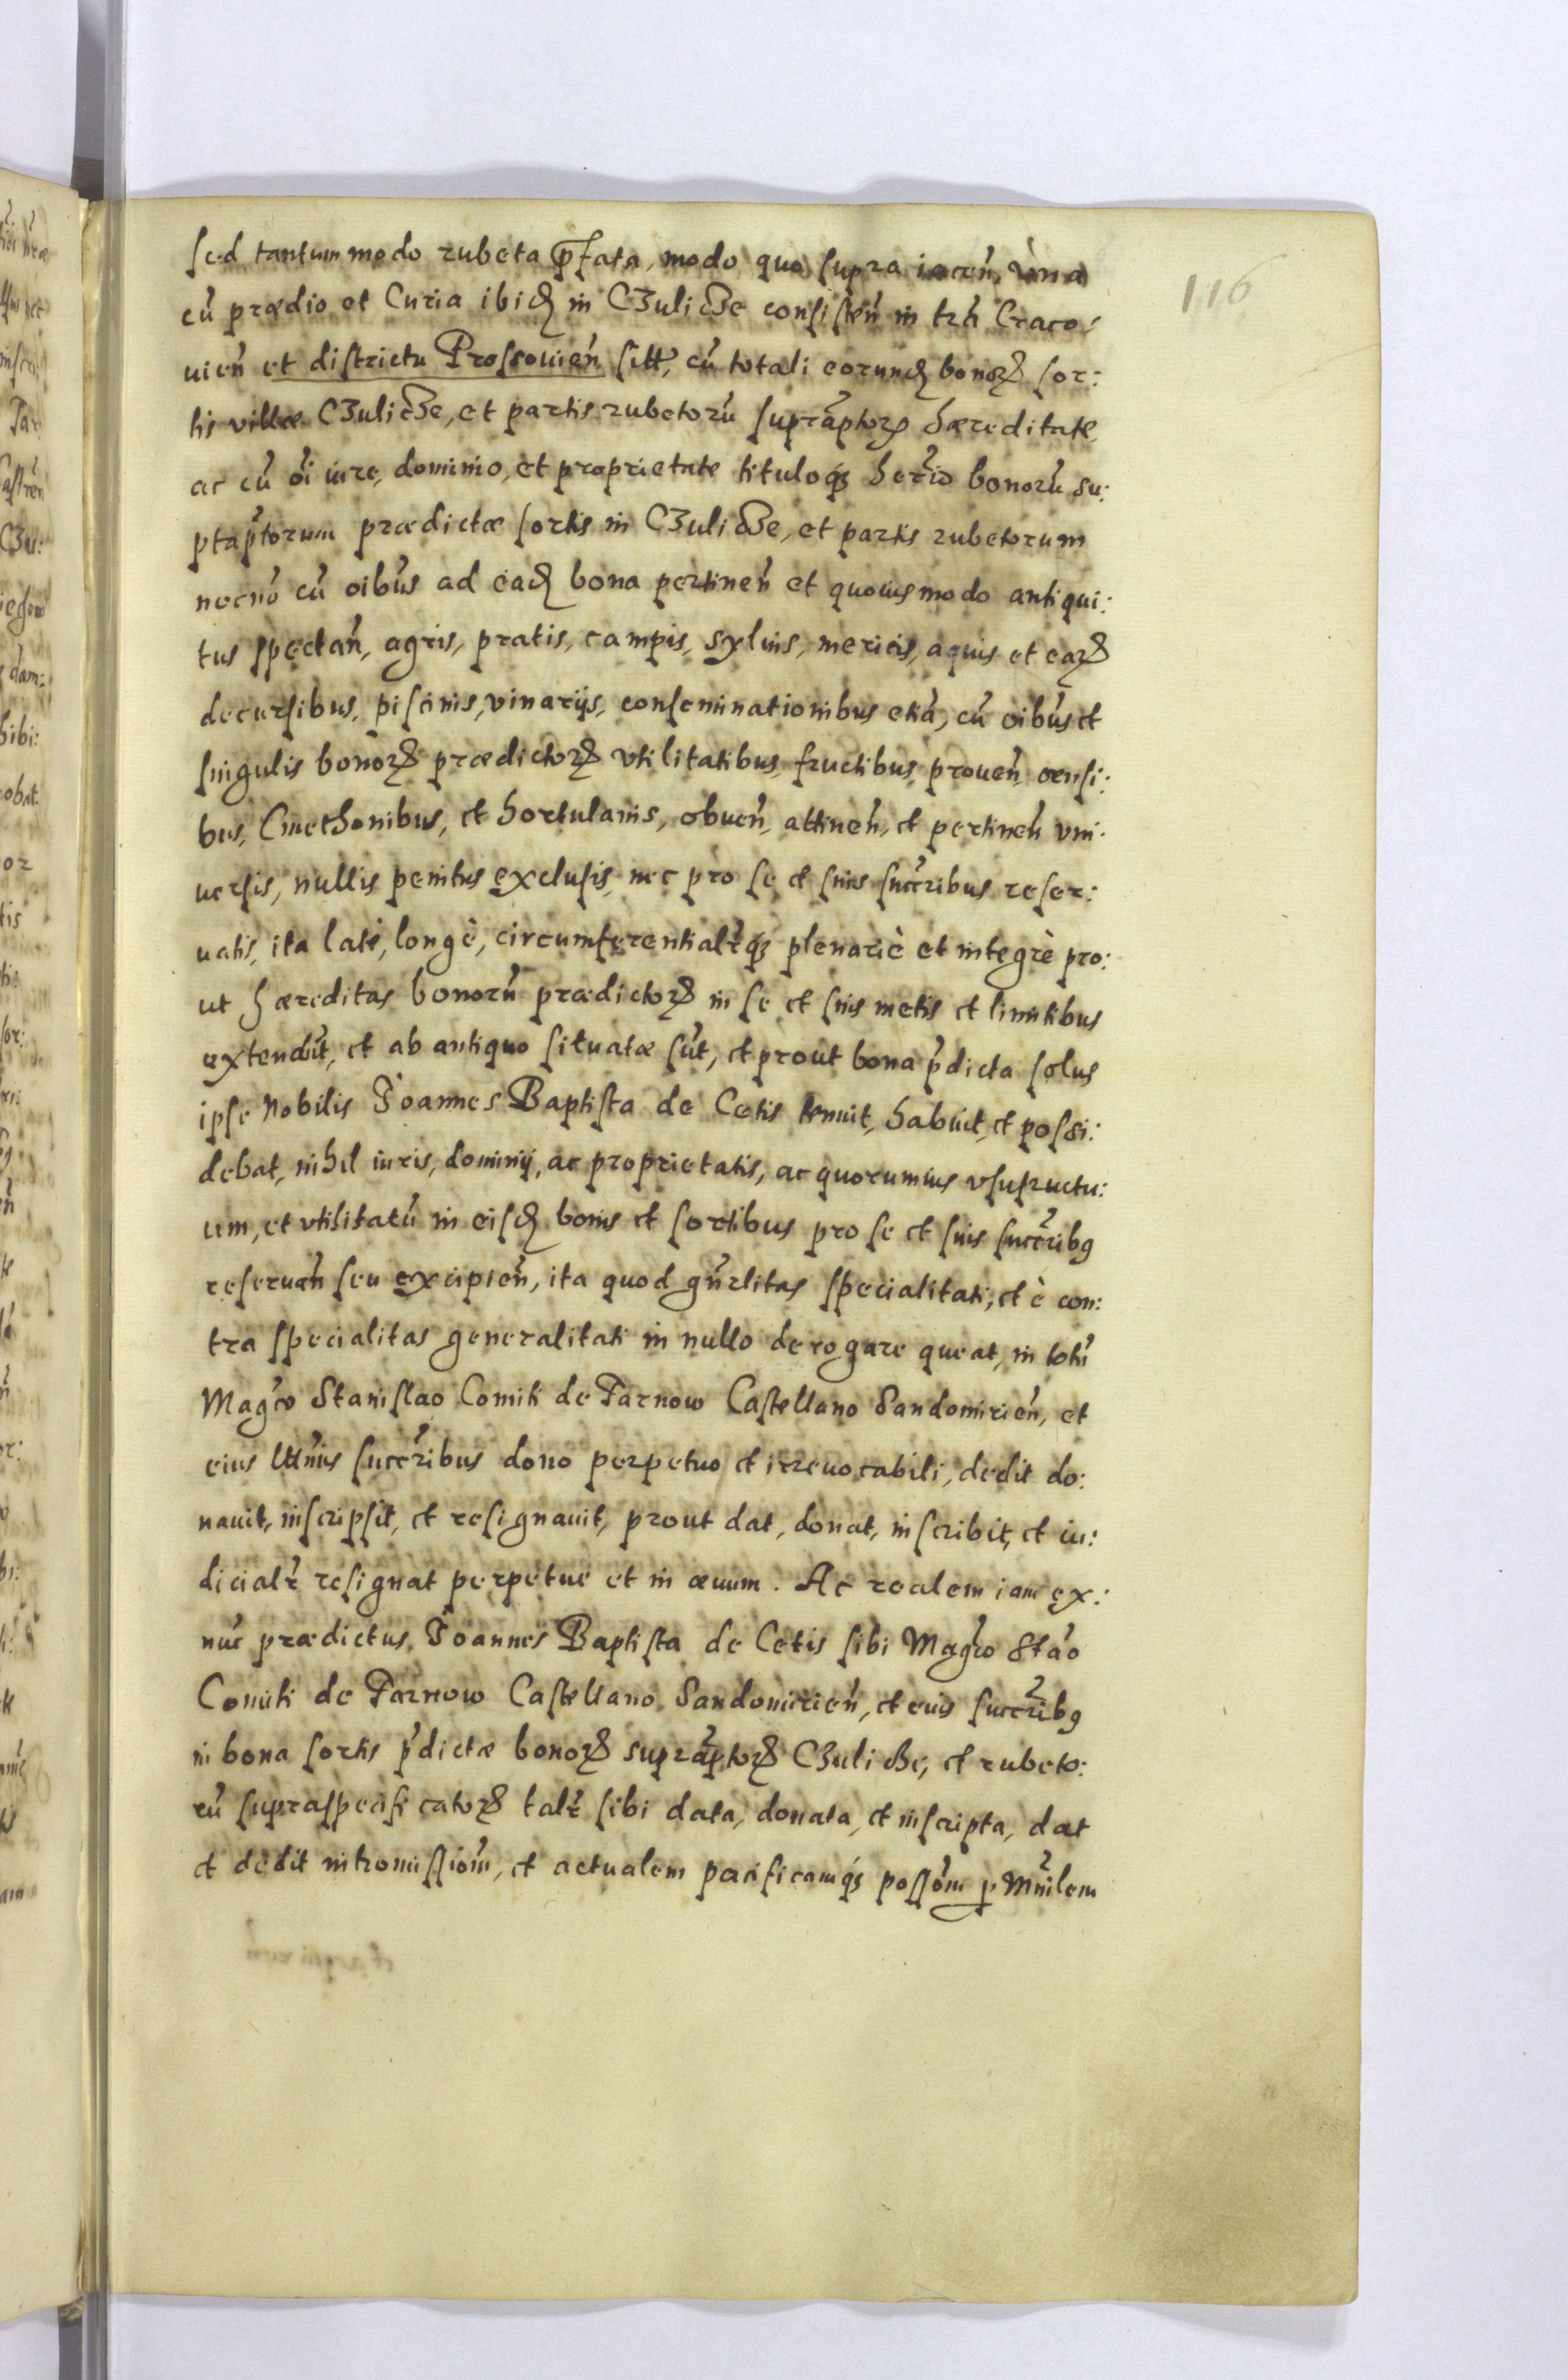 116
sed tantummodo rubeta p̃fata, modo quo supra iacen̄, vna
cū prædio et Curia ibid̨ in Czulicze consisten̄ in trã Craco:
uien̄ et districtu Prossouien̄ sitt, cū totali eorund̨ bonoꝝ sor:
tis villæ Czulicze, et partis rubetorū supraptoꝝ hæreditate
ac cū oī iure, dominio, et proprietate tituloqꝫ her̃io bonorū su:
ptaptorum prædictæ sortis in Czulicze, et partis rubetorum
necnō cū oībus ad ead̨ bona pertinen̄ et quouismodo antiqui:
tus spectan̄, agris, pratis, campis, syluis, mericis, aquis et earꝝ
decursibus, piscinis, vinarijs, conseminationibus etiā, cū oībus et
singulis bonoꝝ prædictoꝝ vtilitatibus, fructibus, prouen̄, censi:
bus, Cmethonibus, et hortulanis, obuen̄, attinen̄, et pertinen̄ vni:
uersis, nullis penitus exclusis, nec pro se et suis succr̃ibus reser:
uatis, ita latè, longè, circumferentialr̃qꝫ plenariè et integrè pro:
ut hæreditas bonorū prædictoꝝ in se et suis metis et limitibus
extendūt, et ab antiquo situatæ sūt, et prout bona p̃dicta solus
ipse Nobilis Joannes Baptista de Cetis tenuit, habuit, et possi:
debat, nihil iuris, dominij, ac proprietatis, ac quorumuis vsufructu:
um, et vtilitatū in eisd̨ bonis et sortibus pro se et suis succr̃ibꝫ
reseruan̄ seu excipien̄, ita quod gn̄rlitas specialitati, et è con:
tra specialitas generalitati in nullo derogare queat, in totū
Magco Stanislao Comiti de Tarnow Castellano Sandomirien̄, et
eius succr̃ibus dono perpetuo et irreuocabili, dedit do:
nauit, inscripsit, et resignauit, prout dat, donat, inscribit, et iu:
dicialr̃ resignat perpetue et in æuum. Ac realem iam ex:
nūc prædictus Joannes Baptista de Cetis sibi Magco Stāo
Comiti de Tarnow Castellano Sandomirien̄, et eius succr̃ibꝫ
in bona sortis p̃dictæ bonoꝝ supraptoꝝ Czulicze, et rubeto:
rū supraspecificatoꝝ talr̃ sibi data, donata, et inscripta, dat
et dedit intromissiōm, et actualem pacificamqꝫ possōm p Mnĩlem